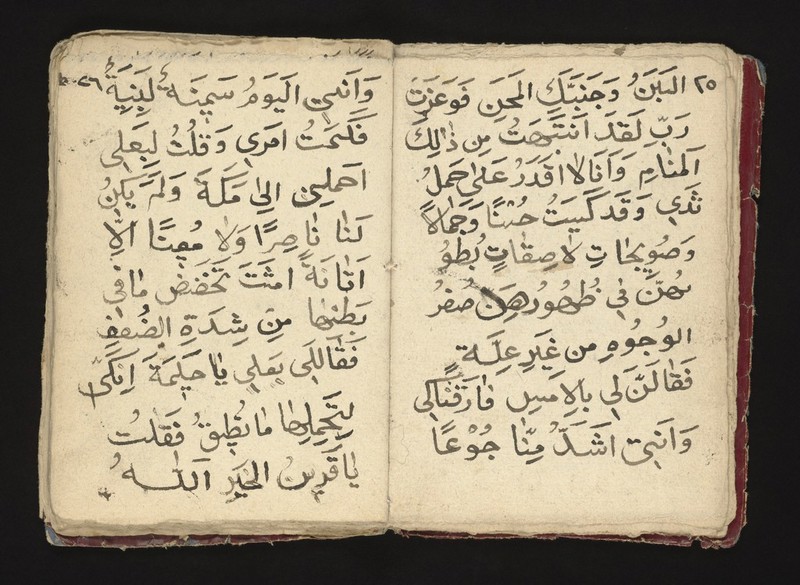 ٢٥ البَنَ وَجَنَّبَكِ المحَن فَوَعِزَتِ
رَبّي لَقَدَ انتَبَهتُ مِن ذٰلِكَ
المنَامِ وَاَنَا لا اقدَرُ عَلىٰ حَملُ
ثَدَي وَقَد كَسَيتُ حُسنًا وَجمَالاً
وَصُويحبَاتِ لاصِقاتٍ بُطُو
نهُنَّ في ظُهُورهِنَ صُفرُ
الوُجُوهِ مِن غَيرِ عِلَةٍ
فَقَالَنَّ لي بالاِمَسِ فارَقتَنَا كي
وَانتي اشَدُّ مِنَّا جُوْعًا
٢٦ وَانَتي اليَومُ سَمِينَةٌ لَبِنِيَةٌ
فَكَتمَتُ امرَي وَقُلتُ لِبَعلي
احمِلني اِلىٰ مَكَةَ وَلَم يَكنُ
لنَا ناصِرًا وَلا مُعِينًا الّا
اتانَةً امشَتَ تَخفَضِ مافي
بَطنِهَا مِن شِدَةِ الضُعفِ
فَقَالَلي بَعلي ياحَلِيمَةَ اِنَكي
لِتَحمِلِهَا مَا تُطِيقُ فَقلتُ
يَا قَرِينُ الخَيرِ اللهُ